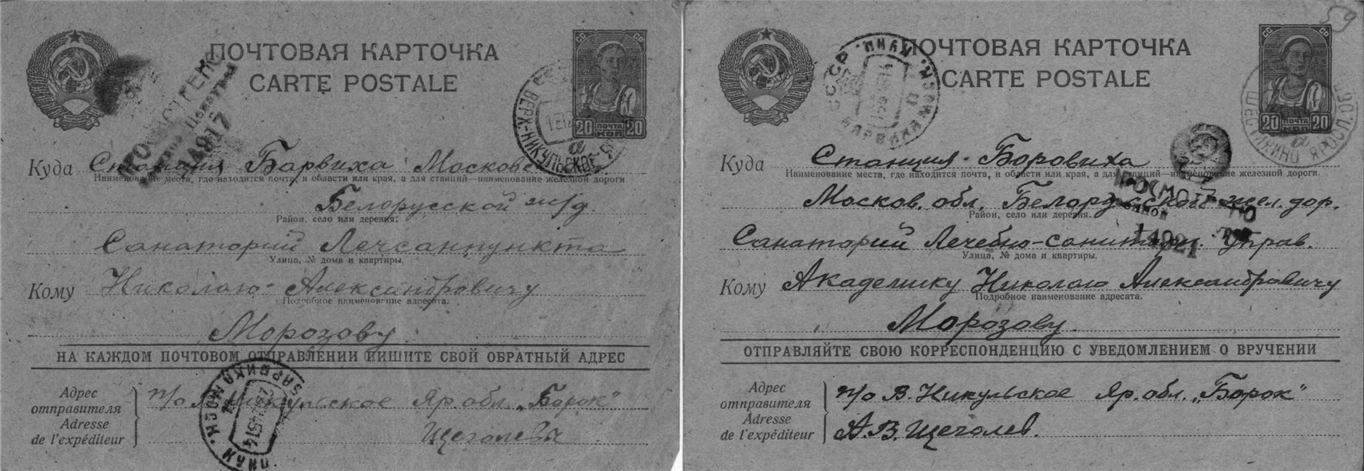 ПОЧТОВАЯ КАРТОЧКА
CARTE POSTALE
20 ПОЧТА 20
КОП.
ВЕРХ-НИКУЛЬСКОЕ
Куда Станция Барвиха Московс
Наименование места, где находится почта, и области или края, а для станций—наименование железной дороги
Белорусской ж/д.
Район, село или деревня.
Санаторий Лечсанпункта
Улица, № дома и квартиры.
Кому Николаю Александровичу
Подробное наименование адресата.
Морозову.
НА КАЖДОМ ПОЧТОВОМ ОТПРАВЛЕНИИ ПИШИТЕ СВОЙ ОБРАТНЫЙ АДРЕС
Адрес отправителя
Adresse de l'expéditeur
п/о Никульское Яр. обл. „Борок"
Щеголевы
59
ПОЧТОВАЯ КАРТОЧКА
CARTE POSTALE
20 ПОЧТА 20
КОП.
Куда Станция Боровиха
Наименование места, где находится почта, и области или края, а для станций—наименование железной дороги
Москов. обл. жел. дор.
Район, село или деревня.
14921
Санаторий Лечебно-санитарн. Управ.
Улица, № дома и квартиры.
Кому Академику Николаю Александровичу
Подробное наименование адресата.
Морозову.
ОТПРАВЛЯЙТЕ СВОЮ КОРРЕСПОНДЕНЦИЮ С УВЕДОМЛЕНИЕМ О ВРУЧЕНИИ
Адрес отправителя
Adresse de l'expéditeur
п/о В. Никульское Яр. обл. „Борок"
А. В. Щеголев.